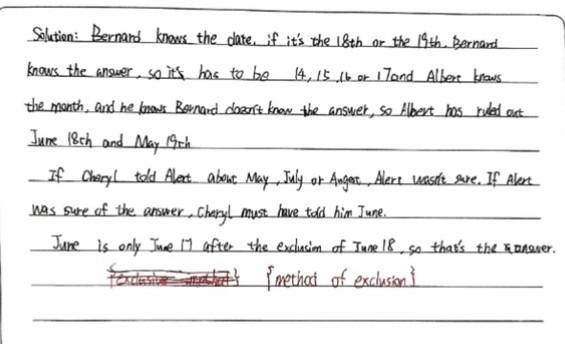 Solution: Bernard knows the date, if it's the 18th or the 19th, Bernard
knows the answer, so it's has to be 14, 15, 16 or 17 and Albert knows
the month, and he knows Bernard doesn't know the answer, so Albert has ruled out
June 18th and May 19th
If Cheryl told Alert about May, July or Augest, Alert wasn't sure. If Alert
was sure of the answer, Cheryl must have told him June.
June is only June 17 after the exclusion of June 18, so that's the answer.
{method of exclusion}